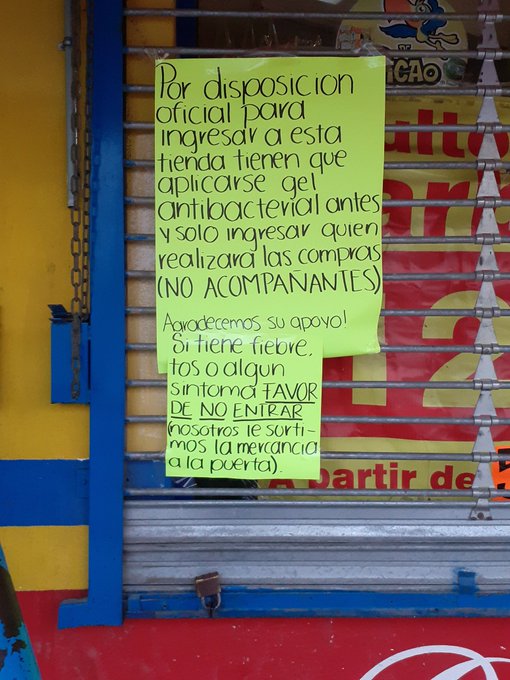 Por disposicion
oficial para
ingresar a esta
tienda tienen que
aplicarse gel
antibacterial antes
y solo ingresar quien
realizara las compras
(NO ACOMPAÑANTES)
Agradecemos su apoyo!
Si tiene fiebre,
tos o algun
sintoma FAVOR
DE NO ENTRAR
(nosotros le surti-
mos la mercancia
a la puerta).
DE
12
A partir de